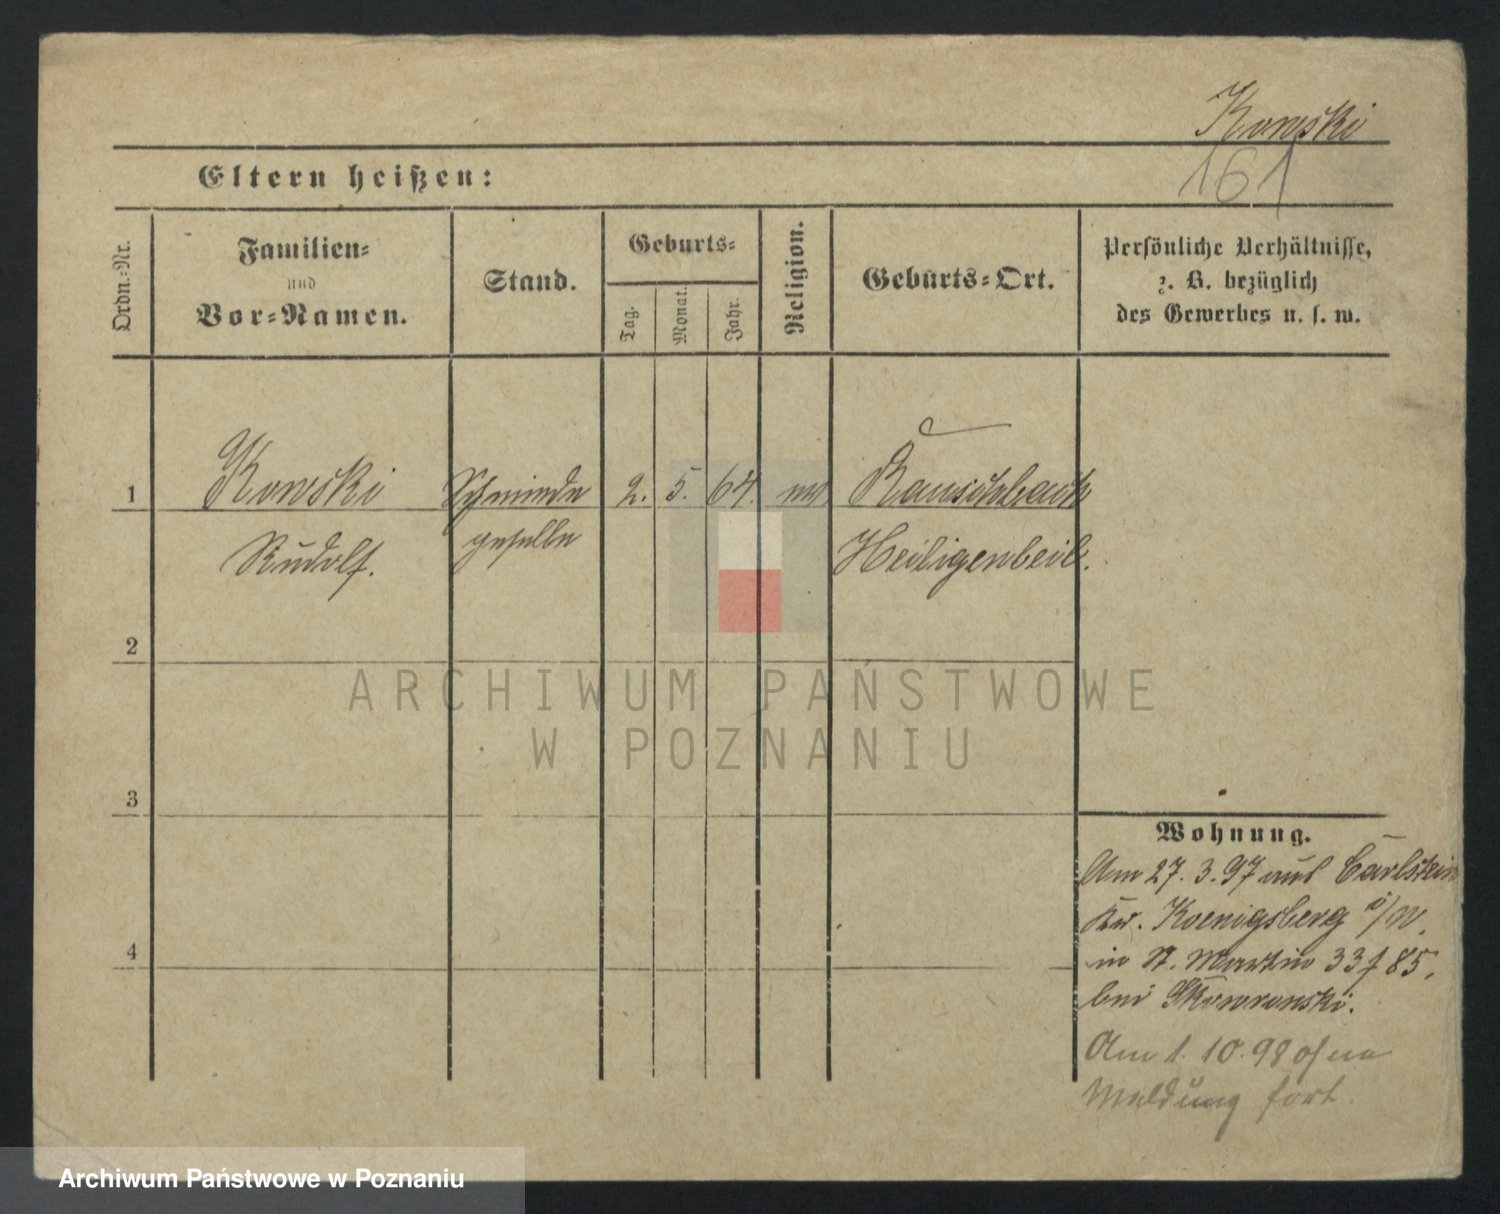 Kowski
161
Eltern heißen:
Ordn.-Nr.
Familien-
und
Vor-Namen.
Stand.
Geburts-
Tag.
Monat.
Jahr.
Religion.
Geburts-Ort.
Persönliche Verhältnisse,
z. B. bezüglich
des Gewerbes u. s. w.
1 Kowski Schmiede 2. 5. 64. Rauschbach
Rudolf. geselle Heiligenbeil.
2
3
4
Wohnung.
Am 27. 3. 97 aus Carlstein
Kr. Koenigsberg i/N.
in St. Martin 33 f 85.
bei Skowronski.
Am 1. 10. 98 ohne
Meldung fort.
ARCHIWUM PAŃSTWOWE
W POZNANIU
Archiwum Państwowe w Poznaniu